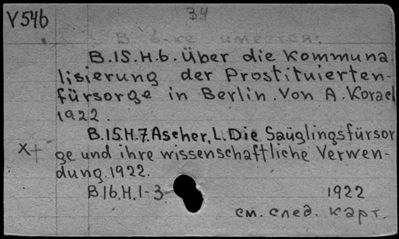 V546
34
В б-ке имеется:
B.15.H.6. Über die Kommuna
lisierung der Prostituierten-
fürsorge in Berlin. Von A. Korach
1922.
B.15.H.7. Ascher, L. Die Saüglingsfürsor
ge und ihre wissenschaftliche Verwen-
dung. 1922.
B.16.H.1-3 1922
см. след. карт.